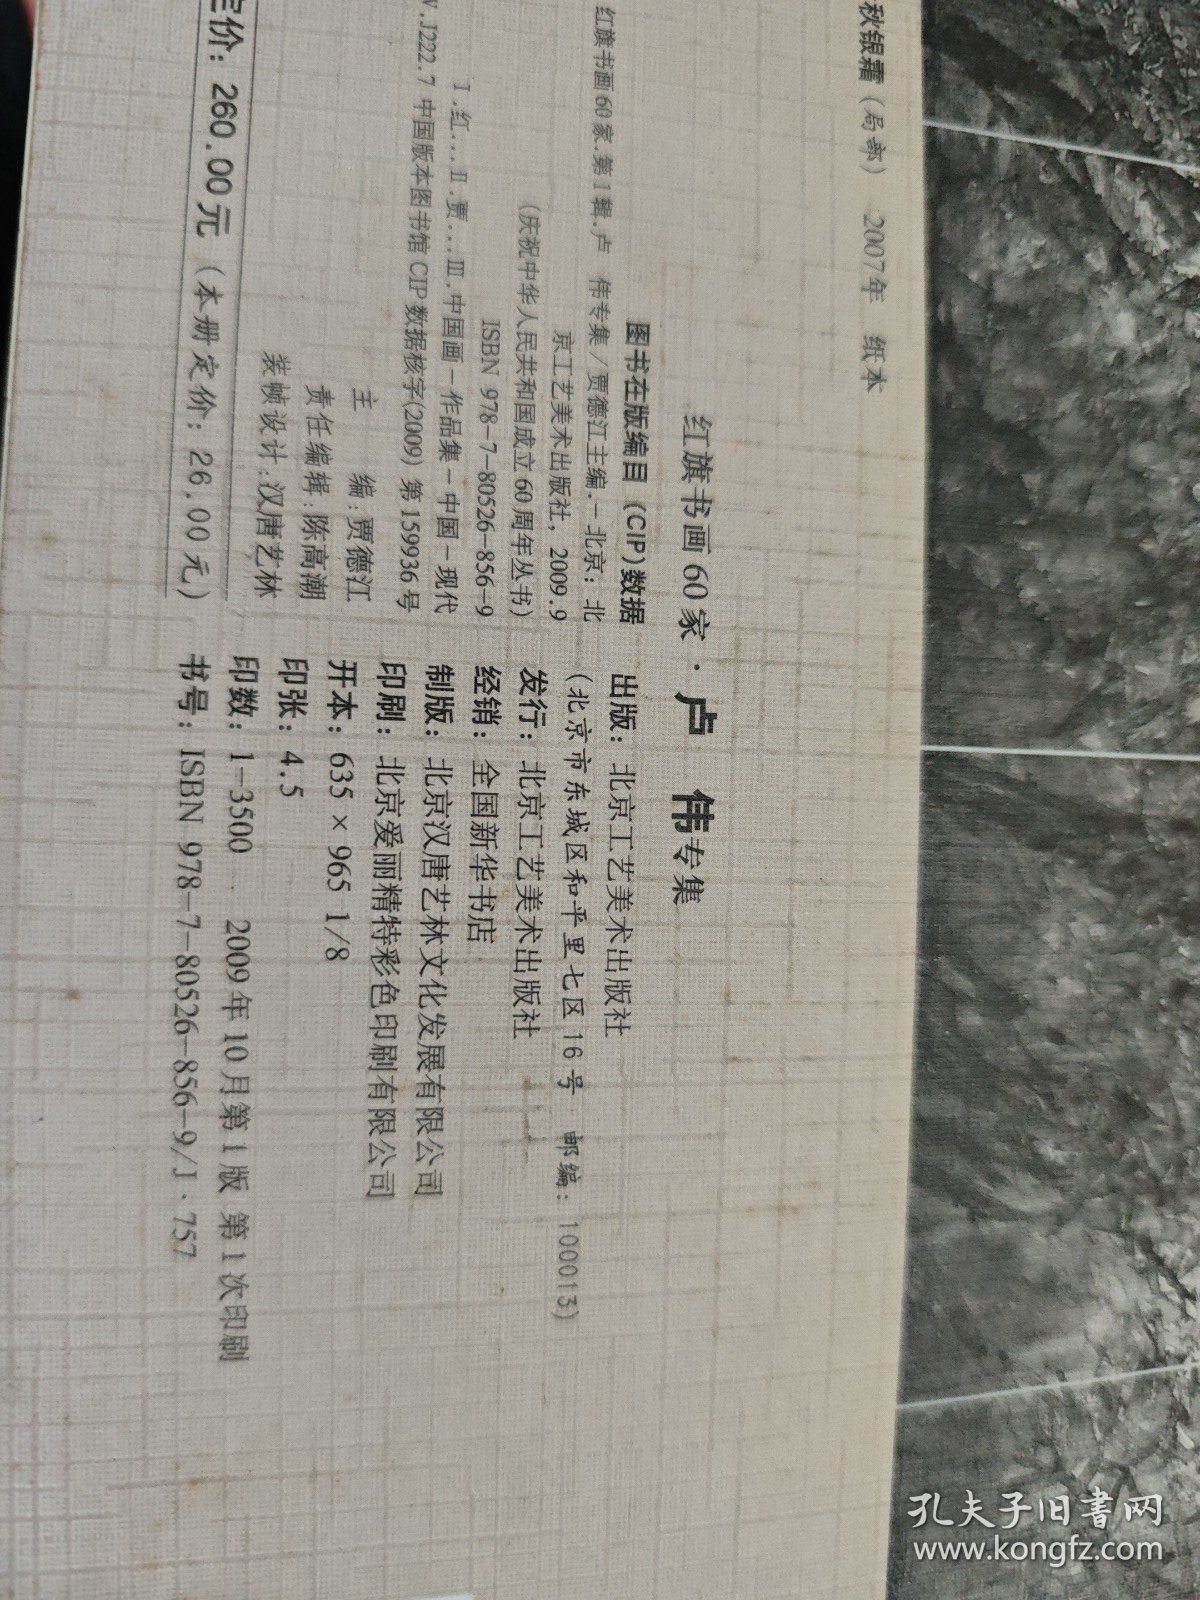 秋银霜（局部） 2007年 纸本
红旗书画60家·卢 伟专集
图书在版编目（CIP）数据
红旗书画60家.第1辑.卢 伟专集/贾德江主编.-北京：北
京工艺美术出版社，2009.9
（庆祝中华人民共和国成立60周年丛书）
ISBN 978-7-80526-856-9
Ⅰ.红… Ⅱ.贾… Ⅲ.中国画-作品集-中国-现代
Ⅳ.J222.7
中国版本图书馆CIP数据核字(2009)第159936号
主 编：贾德江
责任编辑：陈高潮
装帧设计：汉唐艺林
定价：260.00元（本册定价：26.00元）
出版：北京工艺美术出版社
（北京市东城区和平里七区16号 邮编：100013）
发行：北京工艺美术出版社
经销：全国新华书店
制版：北京汉唐艺林文化发展有限公司
印刷：北京爱丽精特彩色印刷有限公司
开本：635×965 1/8
印张：4.5
印数：1-3500 2009年10月第1版 第1次印刷
书号：ISBN 978-7-80526-856-9/J·757
孔夫子旧书网
www.kongfz.com